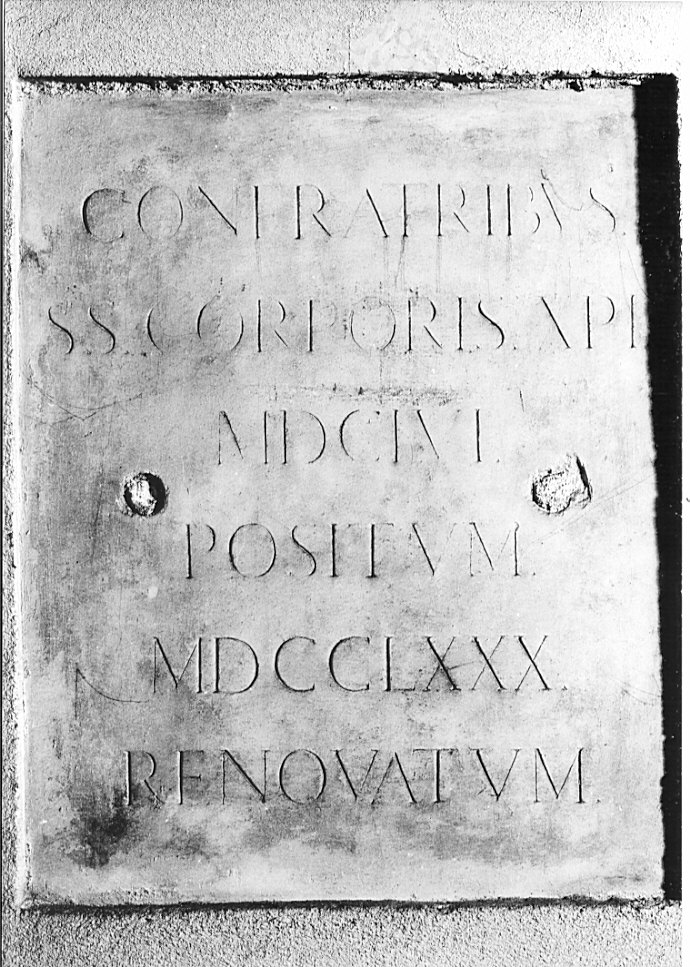 CONFRATRIBVS.
SS. CORPORIS. API
MDCLVI.
POSITVM.
MDCCLXXX.
RENOVATVM.